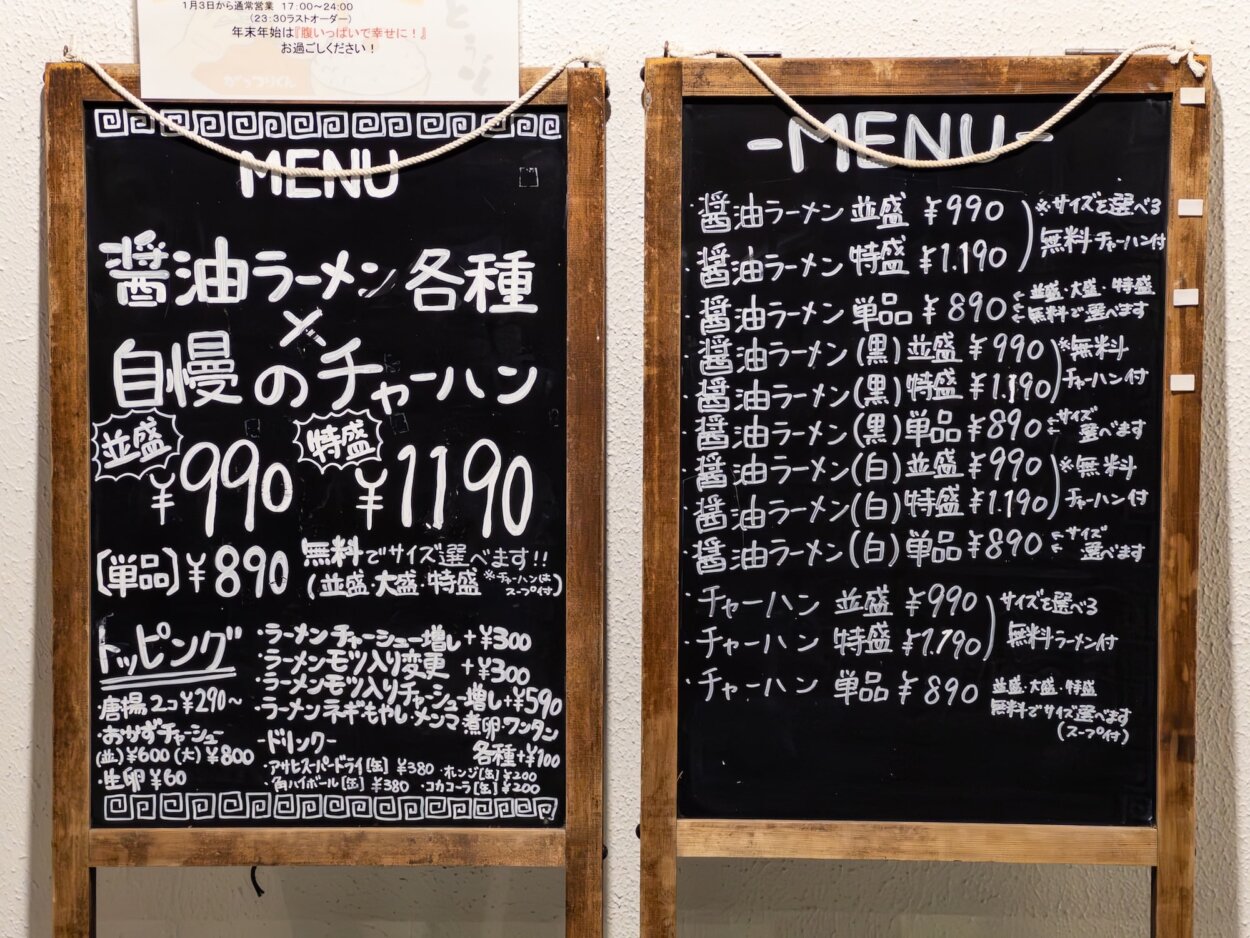 1月3日から通常営業 17:00～24:00
(23:30ラストオーダー)
年末年始は『腹いっぱいで幸せに！』
お過ごしください！
がっつりくん
MENU
醤油ラーメン各種
×
自慢のチャーハン
並盛 ¥990 特盛 ¥1190
[単品] ¥890 無料でサイズ選べます!!
(並盛・大盛・特盛 ※チャーハンはスープ付)
トッピング
唐揚2コ ¥290～
・おかずチャーシュー
(並)¥600 (大)¥800
・生卵 ¥60
・ラーメンチャーシュー増し +¥300
・ラーメンモツ入り変更 +¥300
・ラーメンモツ入りチャーシュー増し +¥590
・ラーメンネギ・もやし・メンマ・煮卵・ワンタン
各種+¥100
-ドリンク-
・アサヒスーパードライ[缶] ¥380 ・ホンジ[缶] ¥200
・角ハイボール[缶] ¥380 ・コカコーラ[缶] ¥200
-MENU-
・醤油ラーメン 並盛 ¥990 ※サイズを選べる
・醤油ラーメン 特盛 ¥1.190 無料チャーハン付
・醤油ラーメン 単品 ¥890 並盛・大盛・特盛
無料で選べます
・醤油ラーメン(黒)並盛 ¥990 ※無料
・醤油ラーメン(黒)特盛 ¥1.190 チャーハン付
・醤油ラーメン(黒)単品 ¥890 サイズ
選べます
・醤油ラーメン(白)並盛 ¥990 ※無料
・醤油ラーメン(白)特盛 ¥1.190 チャーハン付
・醤油ラーメン(白)単品 ¥890 サイズ
選べます
・チャーハン 並盛 ¥990 サイズを選べる
・チャーハン 特盛 ¥1.190 無料ラーメン付
・チャーハン 単品 ¥890 並盛・大盛・特盛
無料でサイズ選べます
(スープ付)